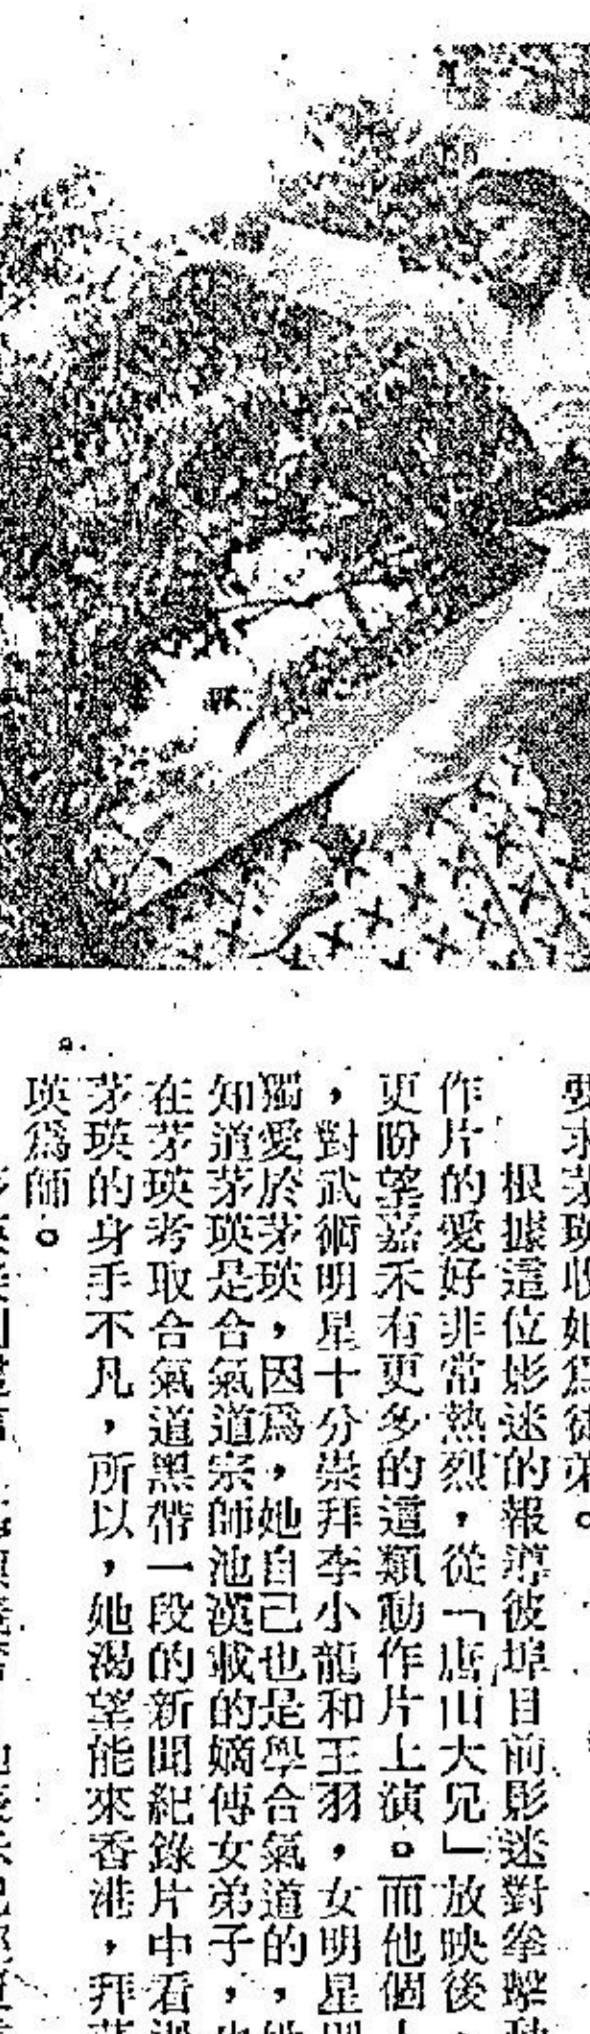 要求茅瑛收她爲徒弟。
根據這位影迷的報導彼埠目前影迷對拳擊動
作片的愛好非常熱烈，從「唐山大兄」放映後，
更盼望嘉禾有更多的這類動作片上演。而他個人
，對武術明星十分崇拜李小龍和王羽，女明星則
獨愛於茅瑛，因爲，她自己也是學合氣道的，她
知道茅瑛是合氣道宗師池漢載的嫡傳女弟子，也
在茅瑛考取合氣道黑帶一段的新聞紀錄片中看過
茅瑛的身手不凡，所以，她渴望能來香港，拜茅
瑛爲師。